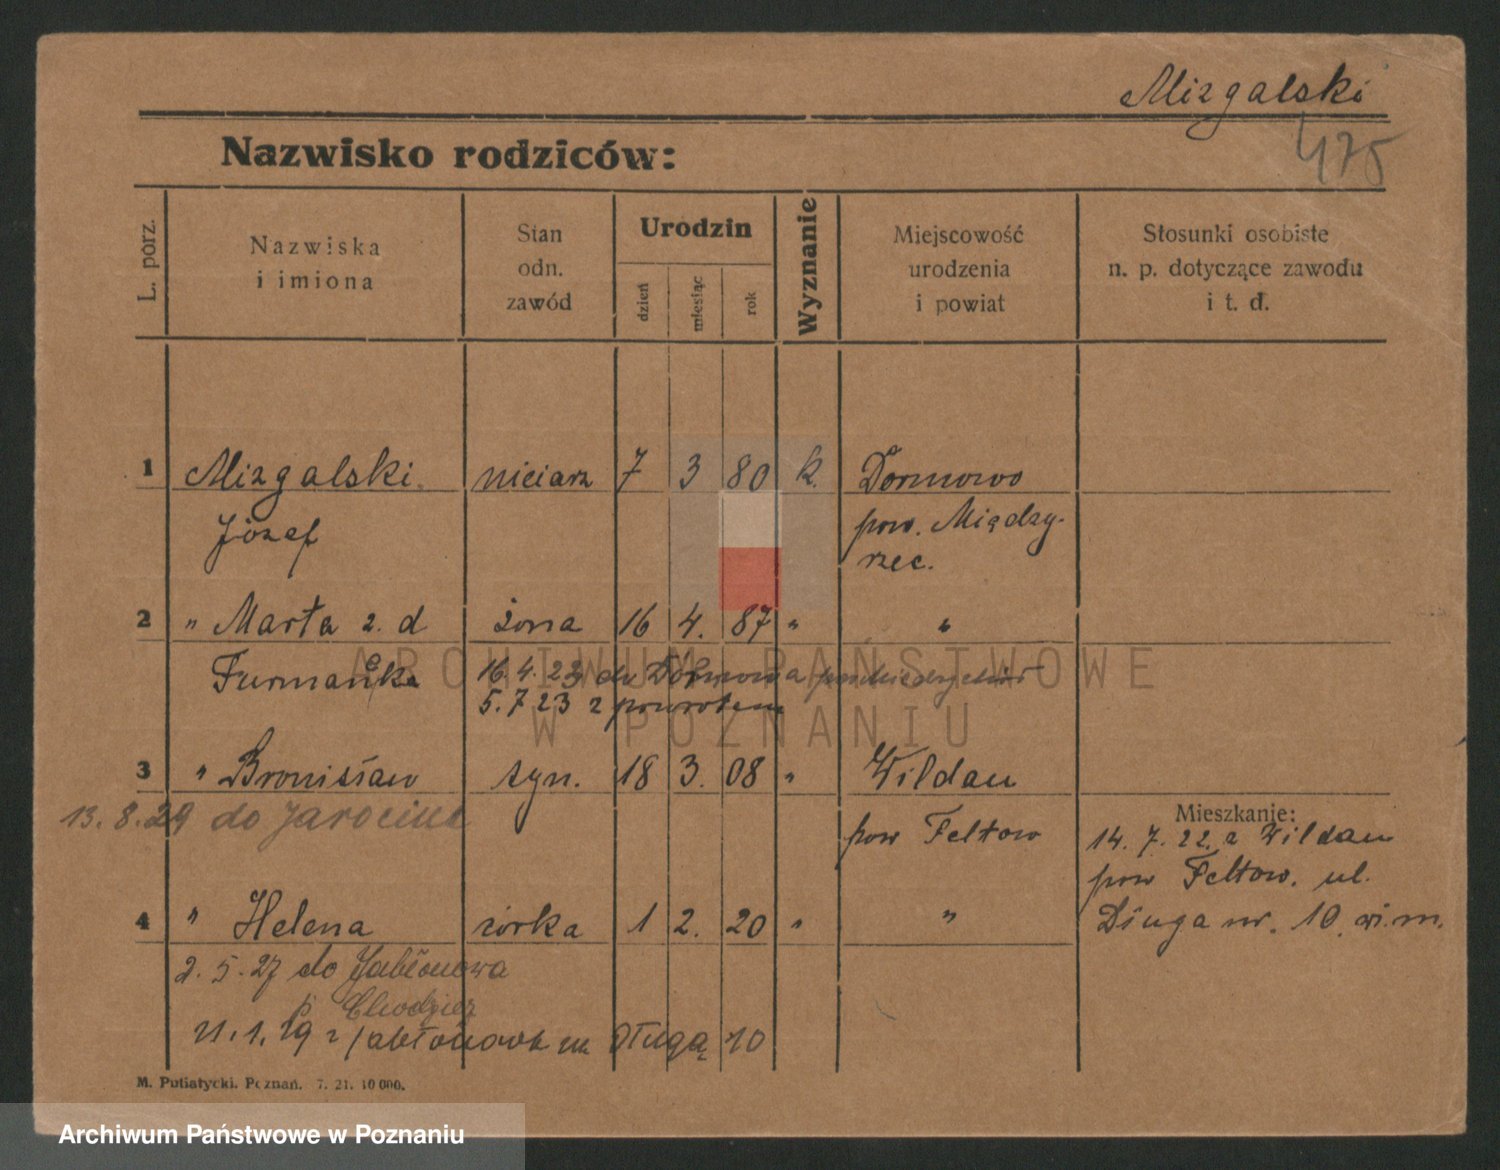 Mizgalski
475
Nazwisko rodziców:
L. porz.
Nazwiska
i imiona
Stan
odn.
zawód
Urodzin
dzień
miesiąc
rok
Wyznanie
Miejscowość
urodzenia
i powiat
Stosunki osobiste
n. p. dotyczące zawodu
i t. d.
1 Mizgalski niciarz 7 3 80 k. Dormowo
Józef pow. Między-
rzec.
2 " Marta z. d żona 16 4. 87 " "
Furmanek
16.4.23 do Dormowa
5.7 23 z powrotem
3 " Bronisław syn. 18 3. 08 " Wildau
13. 8. 29 do Jarocina
pow Teltow
Mieszkanie:
14. 7. 22. z Wildau
pow Teltow. ul.
Długa nr. 10. wi.m.
4 " Helena córka 1 2. 20 " "
2. 5. 27 do Jabłonowa
p Chodzież
21. 1. 29 z Jabłonowa na Długą 10
M. Putiatycki. Poznań. 7. 21. 10 000.
ARCHIWUM PAŃSTWOWE
W POZNANIU
Archiwum Państwowe w Poznaniu